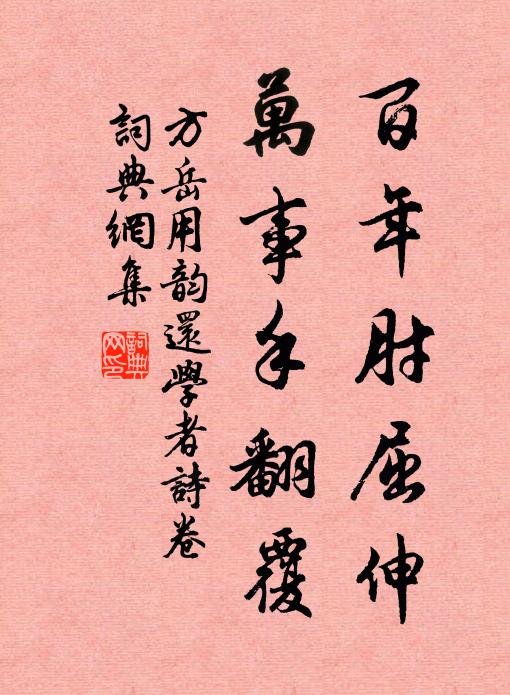 百年肘屈伸
萬事手翻覆
方岳用韵還學者詩卷
詞典網集
詞典网印